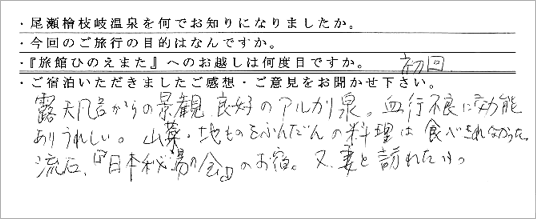 ・尾瀬檜枝岐温泉を何でお知りになりましたか。
・今回のご旅行の目的はなんですか。
・『旅館ひのえまた』へのお越しは何度目ですか。 初回
・ご宿泊いただきましたご感想・ご意見をお聞かせ下さい。
露天風呂からの景観良好のアルカリ泉。血行不良に効能
ありうれしい。山菜・地ものをふんだんの料理は食べきれなかった。
流石、『日本秘湯の会』のお宿。又、妻と訪れたいっ。